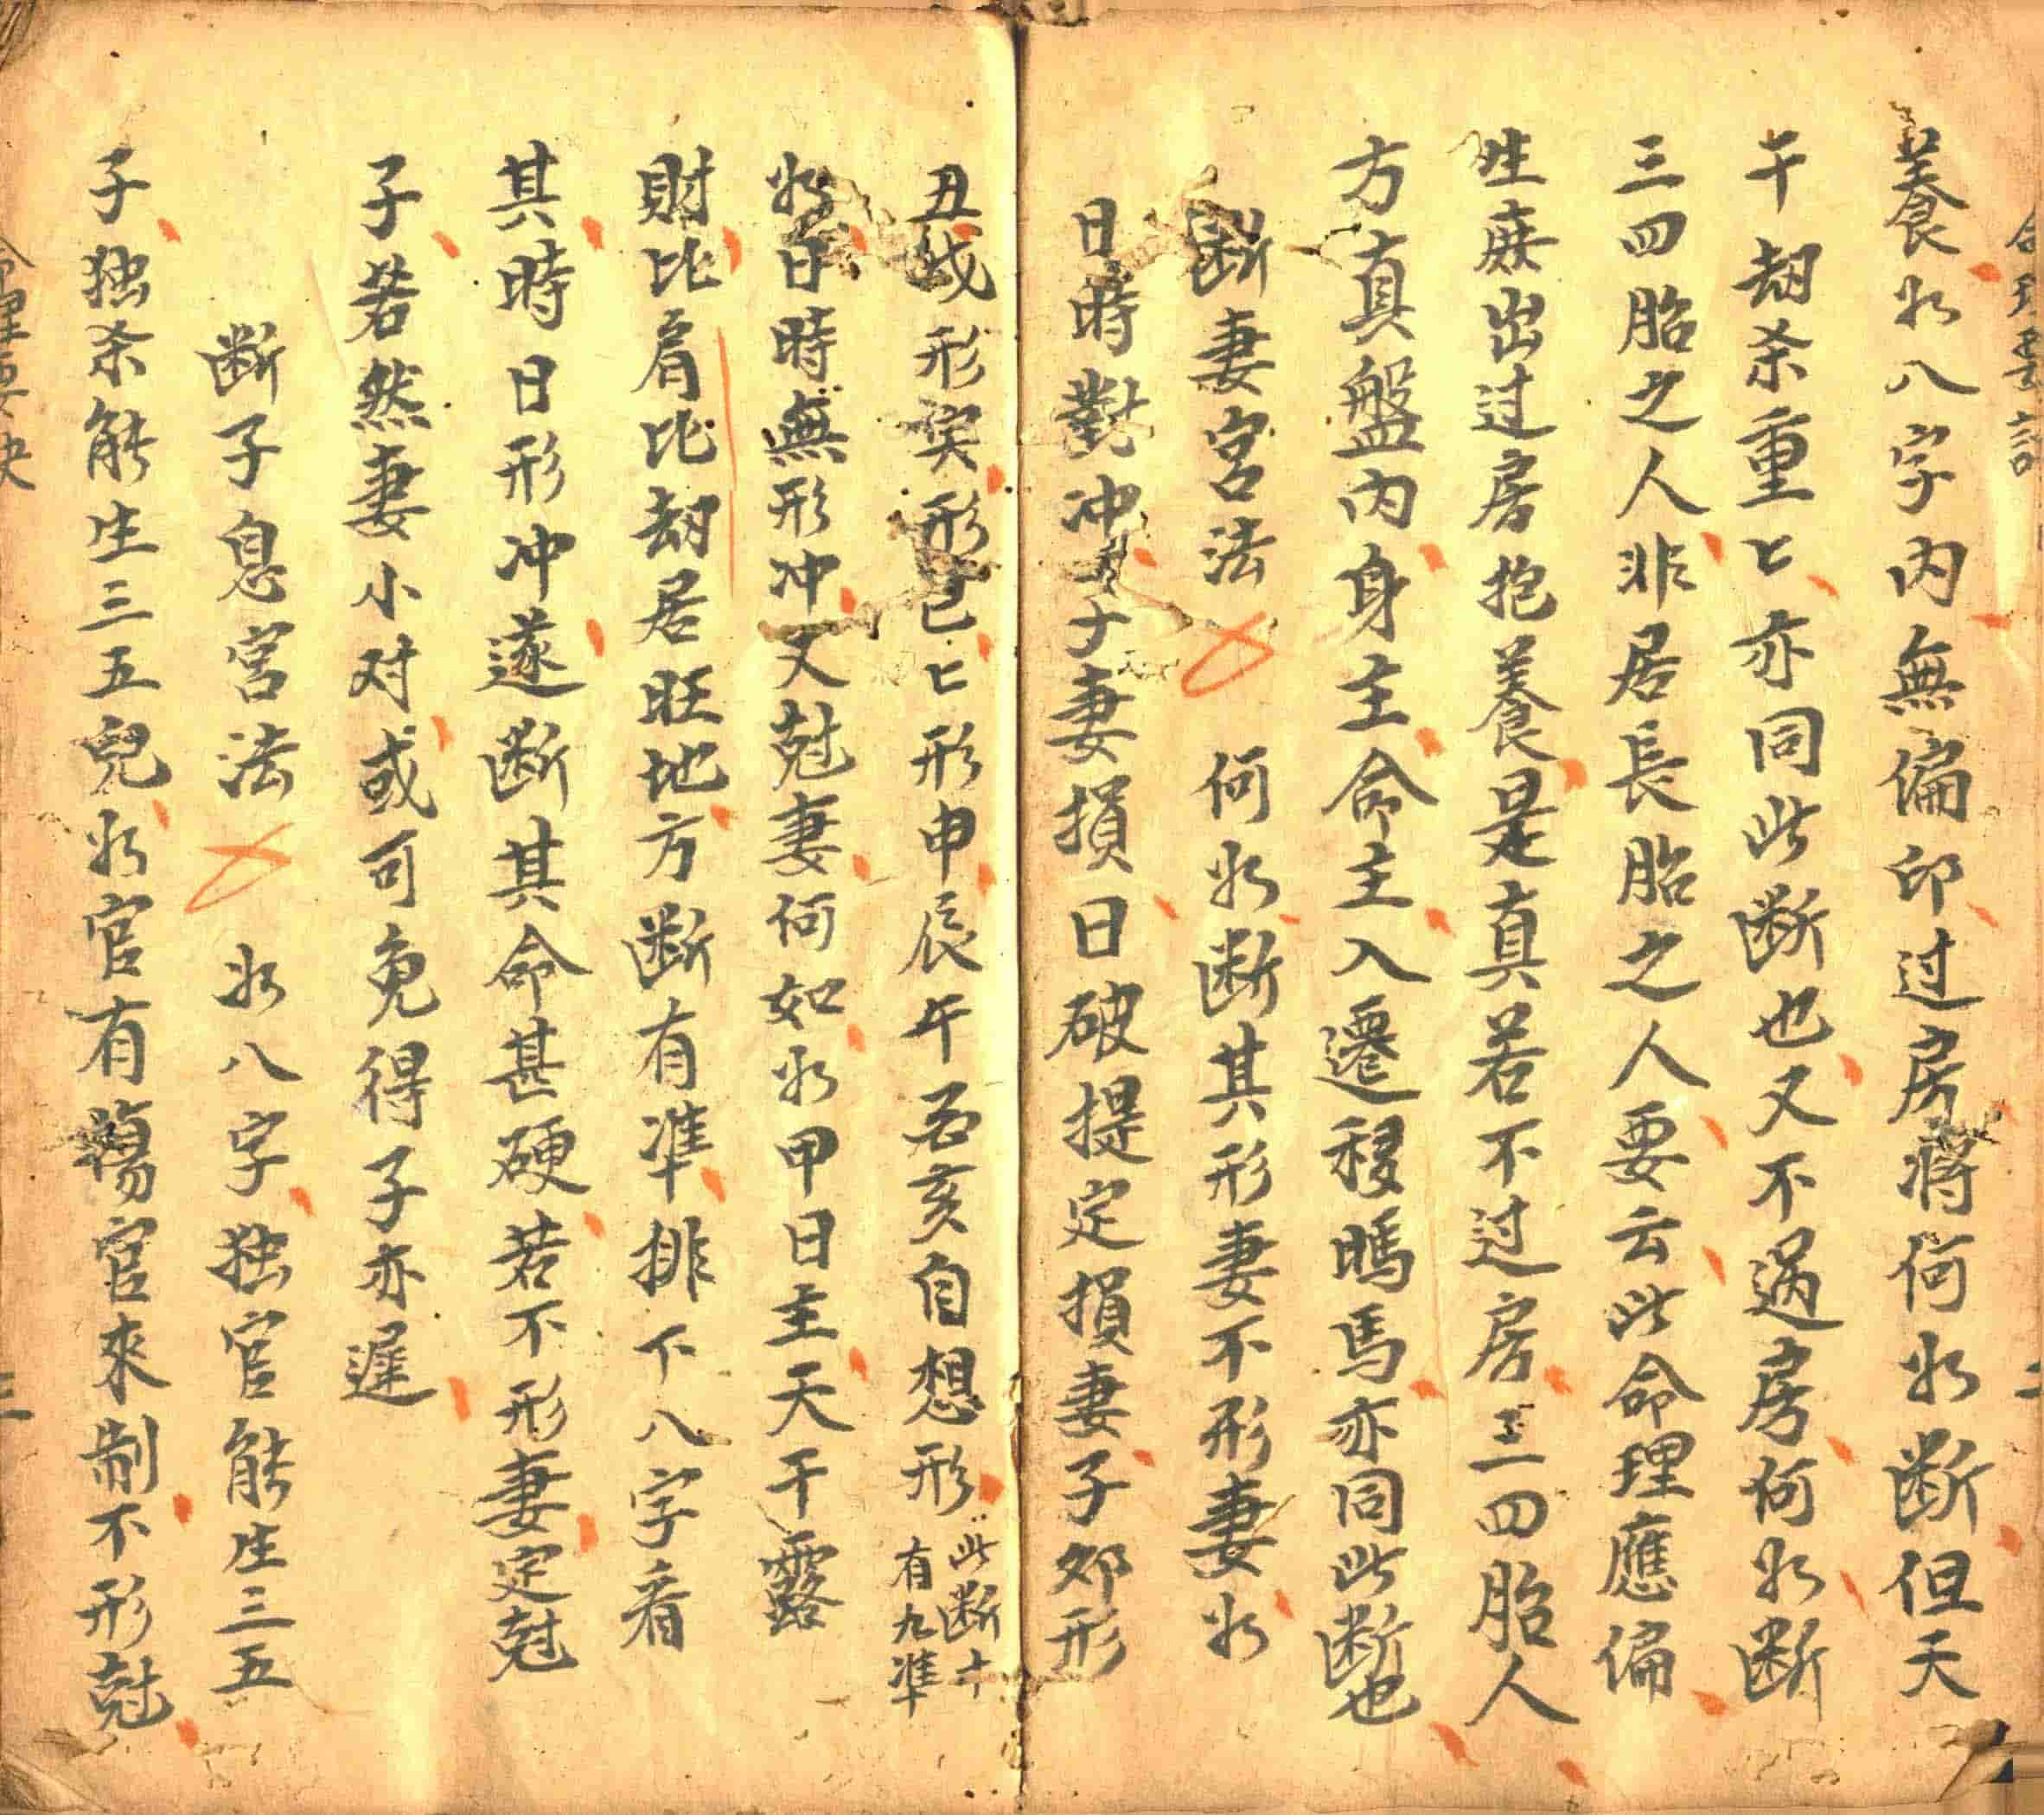 養如八字内無偏印过房将何如断但天
干刼杀重匕亦同此断也又不过房何如断
三四胎之人非居長胎之人要云此命理應偏
生庶出过房抱養是真若不过房三四胎人
方真盤内身主命主入遷移鴇馬亦同此断也
断妻宮法 何如断其形妻不形妻如
日時對冲子妻損日破提定損妻子夘形
丑戌形寅形巳匕形申辰午酉亥自想形此断十
有九准
如日時無形冲又尅妻何如如甲日主天干露
財比肩比刼居旺地方断有准排下八字看
其時日形冲遂断其命甚硬若不形妻定尅
子若然妻小对或可免得子亦遲
断子息宮法 如八字独官能生三五
子独杀能生三五兒如官有傷官來制不形尅
命理要決
三